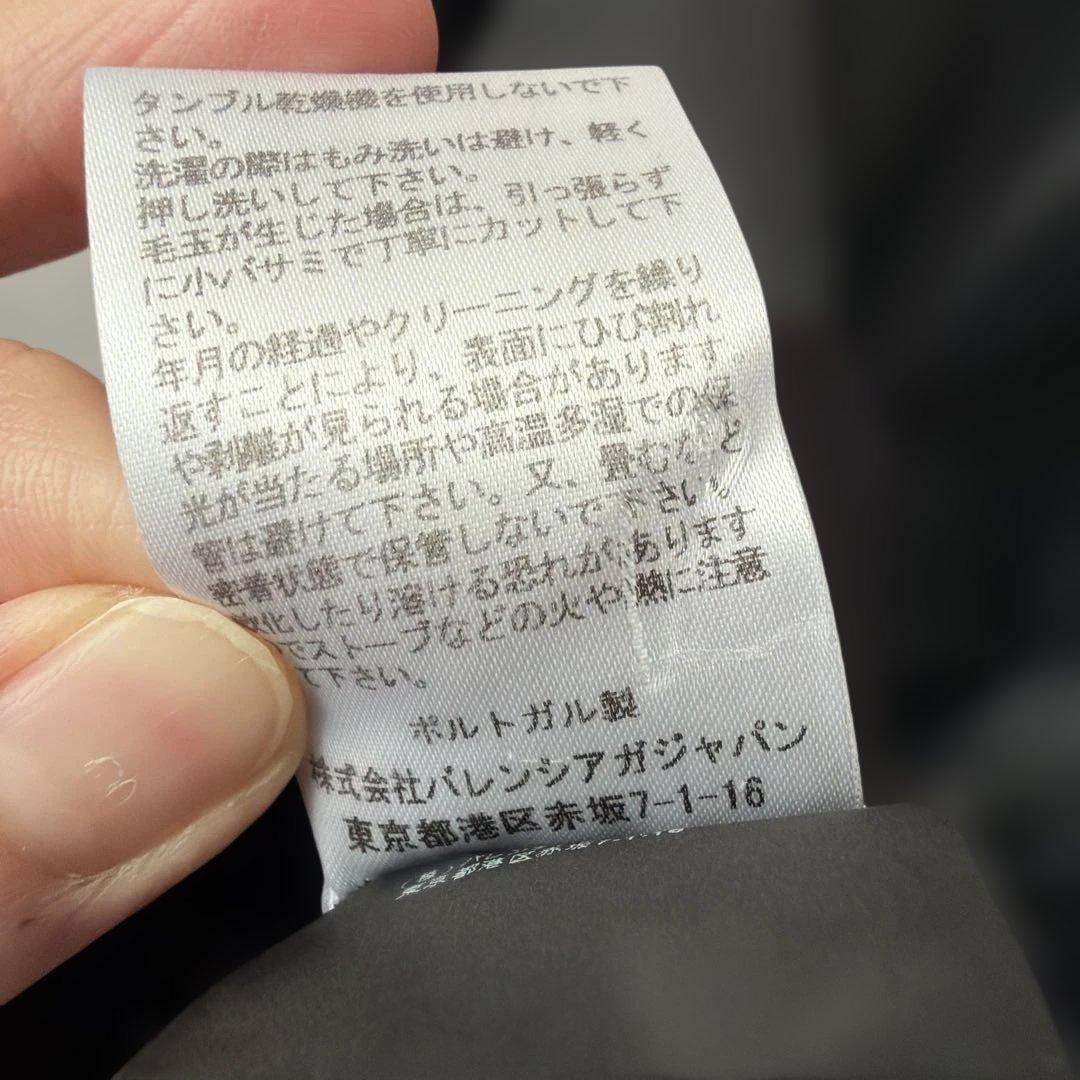 タンブル乾燥機を使用しないで下
さい。
洗濯の際はもみ洗いは避け、軽く
押し洗いして下さい。
毛玉が生じた場合は、引っ張らず
に小バサミで丁寧にカットして下
さい。
年月の経過やクリーニングを繰り
返すことにより、表面にひび割れ
や剥離が見られる場合があります
光が当たる場所や高温多湿での保
管は避けて下さい。又、畳むなど
密着状態で保管しないで下さい。
化したり溶ける恐れがあります
でストーブなどの火や熱に注意
て下さい。
ポルトガル製
株式会社バレンシアガジャパン
東京都港区赤坂7-1-16
東京都港区赤坂